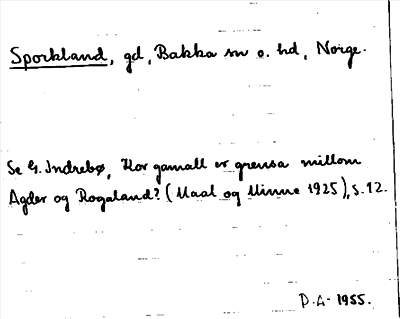 Sporkland, gd, Bakka sn o. hd, Norge.
Se G. Indrebø, Kor gamall er grensa millom
Agder og Rogaland? (Maal og Minne 1925), s. 12.
D.A. 1955.